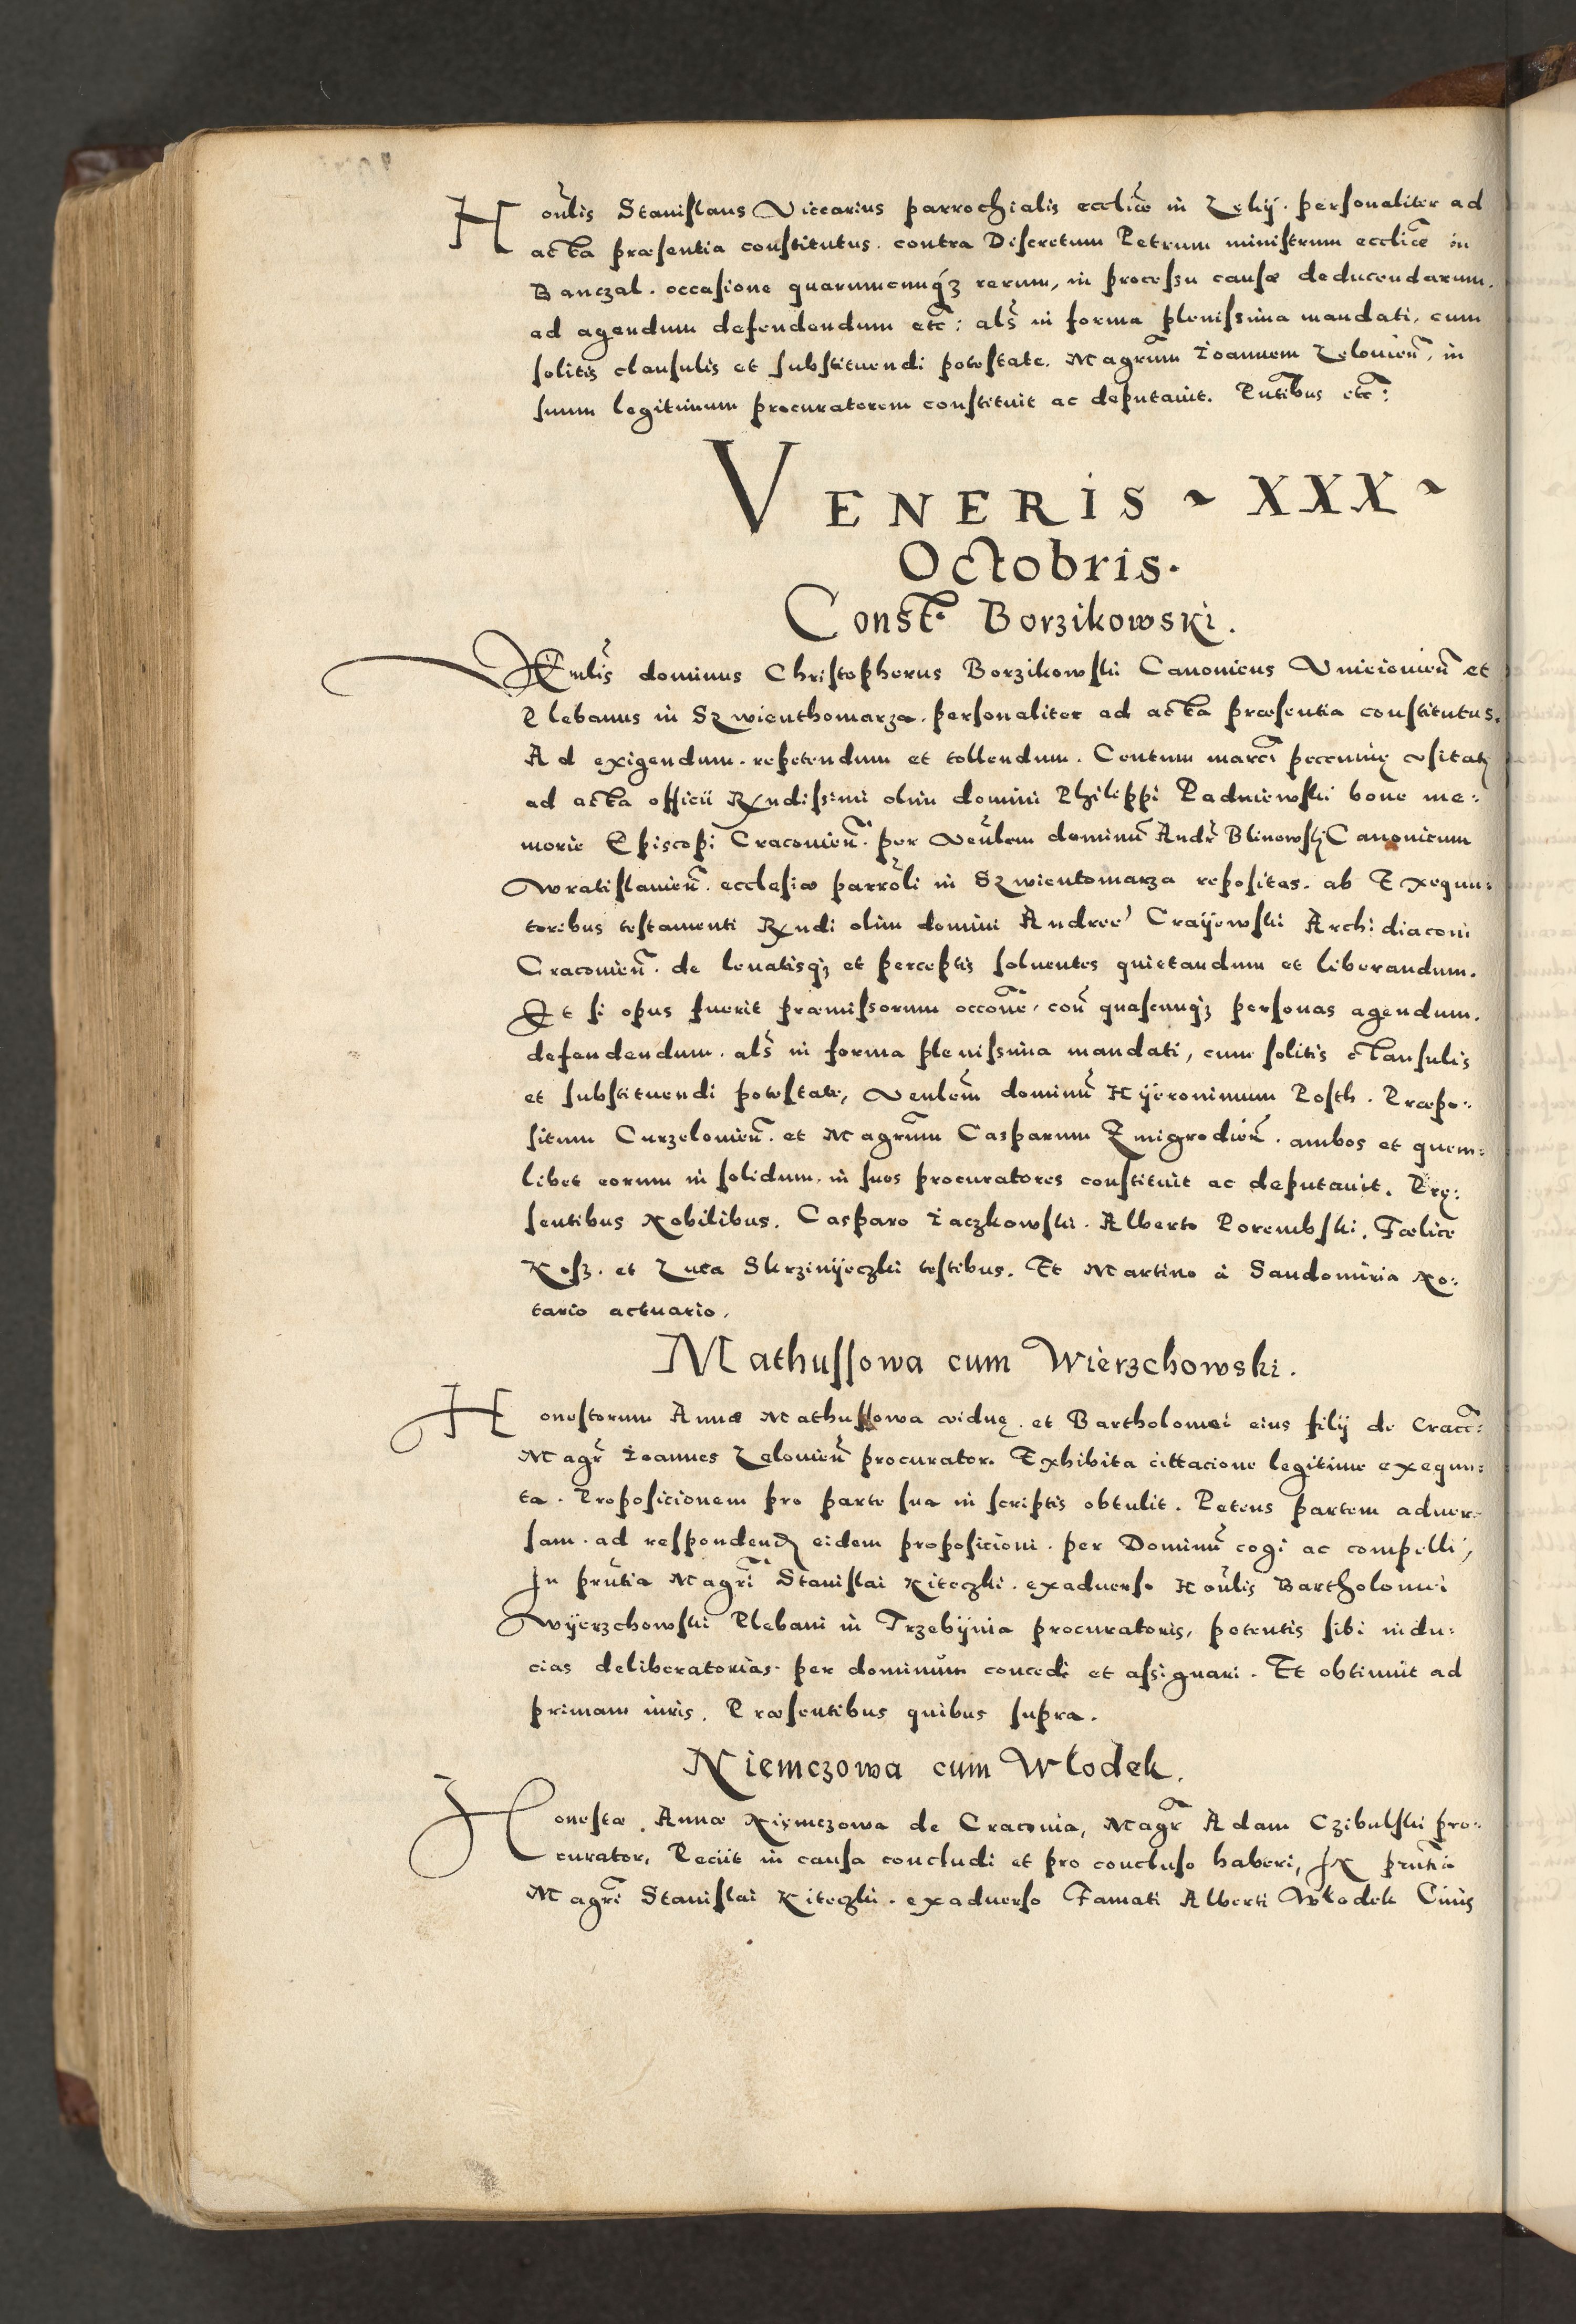 Hoñlis Stanislaus Viccarius parrochialis eccliæ in Zękij. personaliter ad
acta præsentia constitutus. contra Discretum Petrum ministrum eccliæ in
Banczal. occasione quarumcunq3 rerum, in processu causæ deducendarum.
ad agendum defendendum etc̃: als̃ in forma plenissima mandati, cum
solitis clausulis et substituendi potestate. Magrũm Ioannem Zeloniẽn, in
suum legitimum procuratorem constituit ac deputauit. Pñtibus etc̃:
VENERIS ~ XXX ~
Octobris.
Const̃. Borzikowski.
Vẽnlis dominus Christopherus Borzikowski Canonicus Vnieiouieñ et
Plebanus in Szwienthomarza. personaliter ad acta præsentia constitutus.
Ad exigendum. repetendum et tollendum. Centum marcĩ peccunię vsitatę
ad acta officii Rx̃ndissimi olim domini Philippi Padniewski bone me:
morie Episcopi Cracouieñ. per Veñlem dominũ Andr̃ Blinowski Canonicum
Wratislauieñ. ecclesiæ parrõli in Szwientomarza repositas. ab Exequu:
toribus testamenti Rx̃ndi olim domini Andree Crayewski Archidiaconi
Cracouieñ. de leuatisq3 et perceptis soluentes quietandum et liberandum.
Et si opus fuerit præmissorum occoñe, coñ quascunq3 personas agendum.
defendendum. als̃ in forma plenissima mandati, cum solitis clausulis
et substituendi potestate, Venlem̃ dominũ Hyeronimum Posth. Præpo:
situm Curzelouieñ. et Magrũm Casparum Zmigrodieñ. ambos et quem:
libet eorum in solidum. in suos procuratores constituit ac deputauit. Prę:
sentibus Nobilibus. Casparo Iaczkowski. Alberto Porembski. Fœlice
Kosz. et Luca Skrzinyeczki testibus. Et Martino à Sandomiria No:
tario actuario.
Mathussowa cum Wierzchowski.
Honestorum Annæ Mathussowa viduę. et Bartholomei eius filij de Cracc̃:
Magr̃ Ioannes Zelouieñ procurator. Exhibita cittacione legitime exequu:
ta. Proposicionem pro parte sua in scriptis obtulit. Petens partem aduer:
sam. ad respondend eidem proposicioni. per Dominũ cogi ac compelli,
In prñtia Magrĩ Stanislai Kiteczki. exaduerso Hoñlis Bartholomei
Wyerzchowski Plebani in Trzebynia procuratoris, petentis sibi indu:
cias deliberatorias. per dominum concedi et assignari. Et obtinuit ad
primam iuris. Præsentibus quibus supra.
Niemczowa cum Włodek.
Honestæ. Annæ Niemczowa de Cracouia, Magr̃ Adam Czibulski pro:
curator, Peciit in causa concludi et pro concluso haberi, In prñtia
Magrĩ Stanislai Kiteczki. exaduerso Famati Alberti Włodek Ciuis